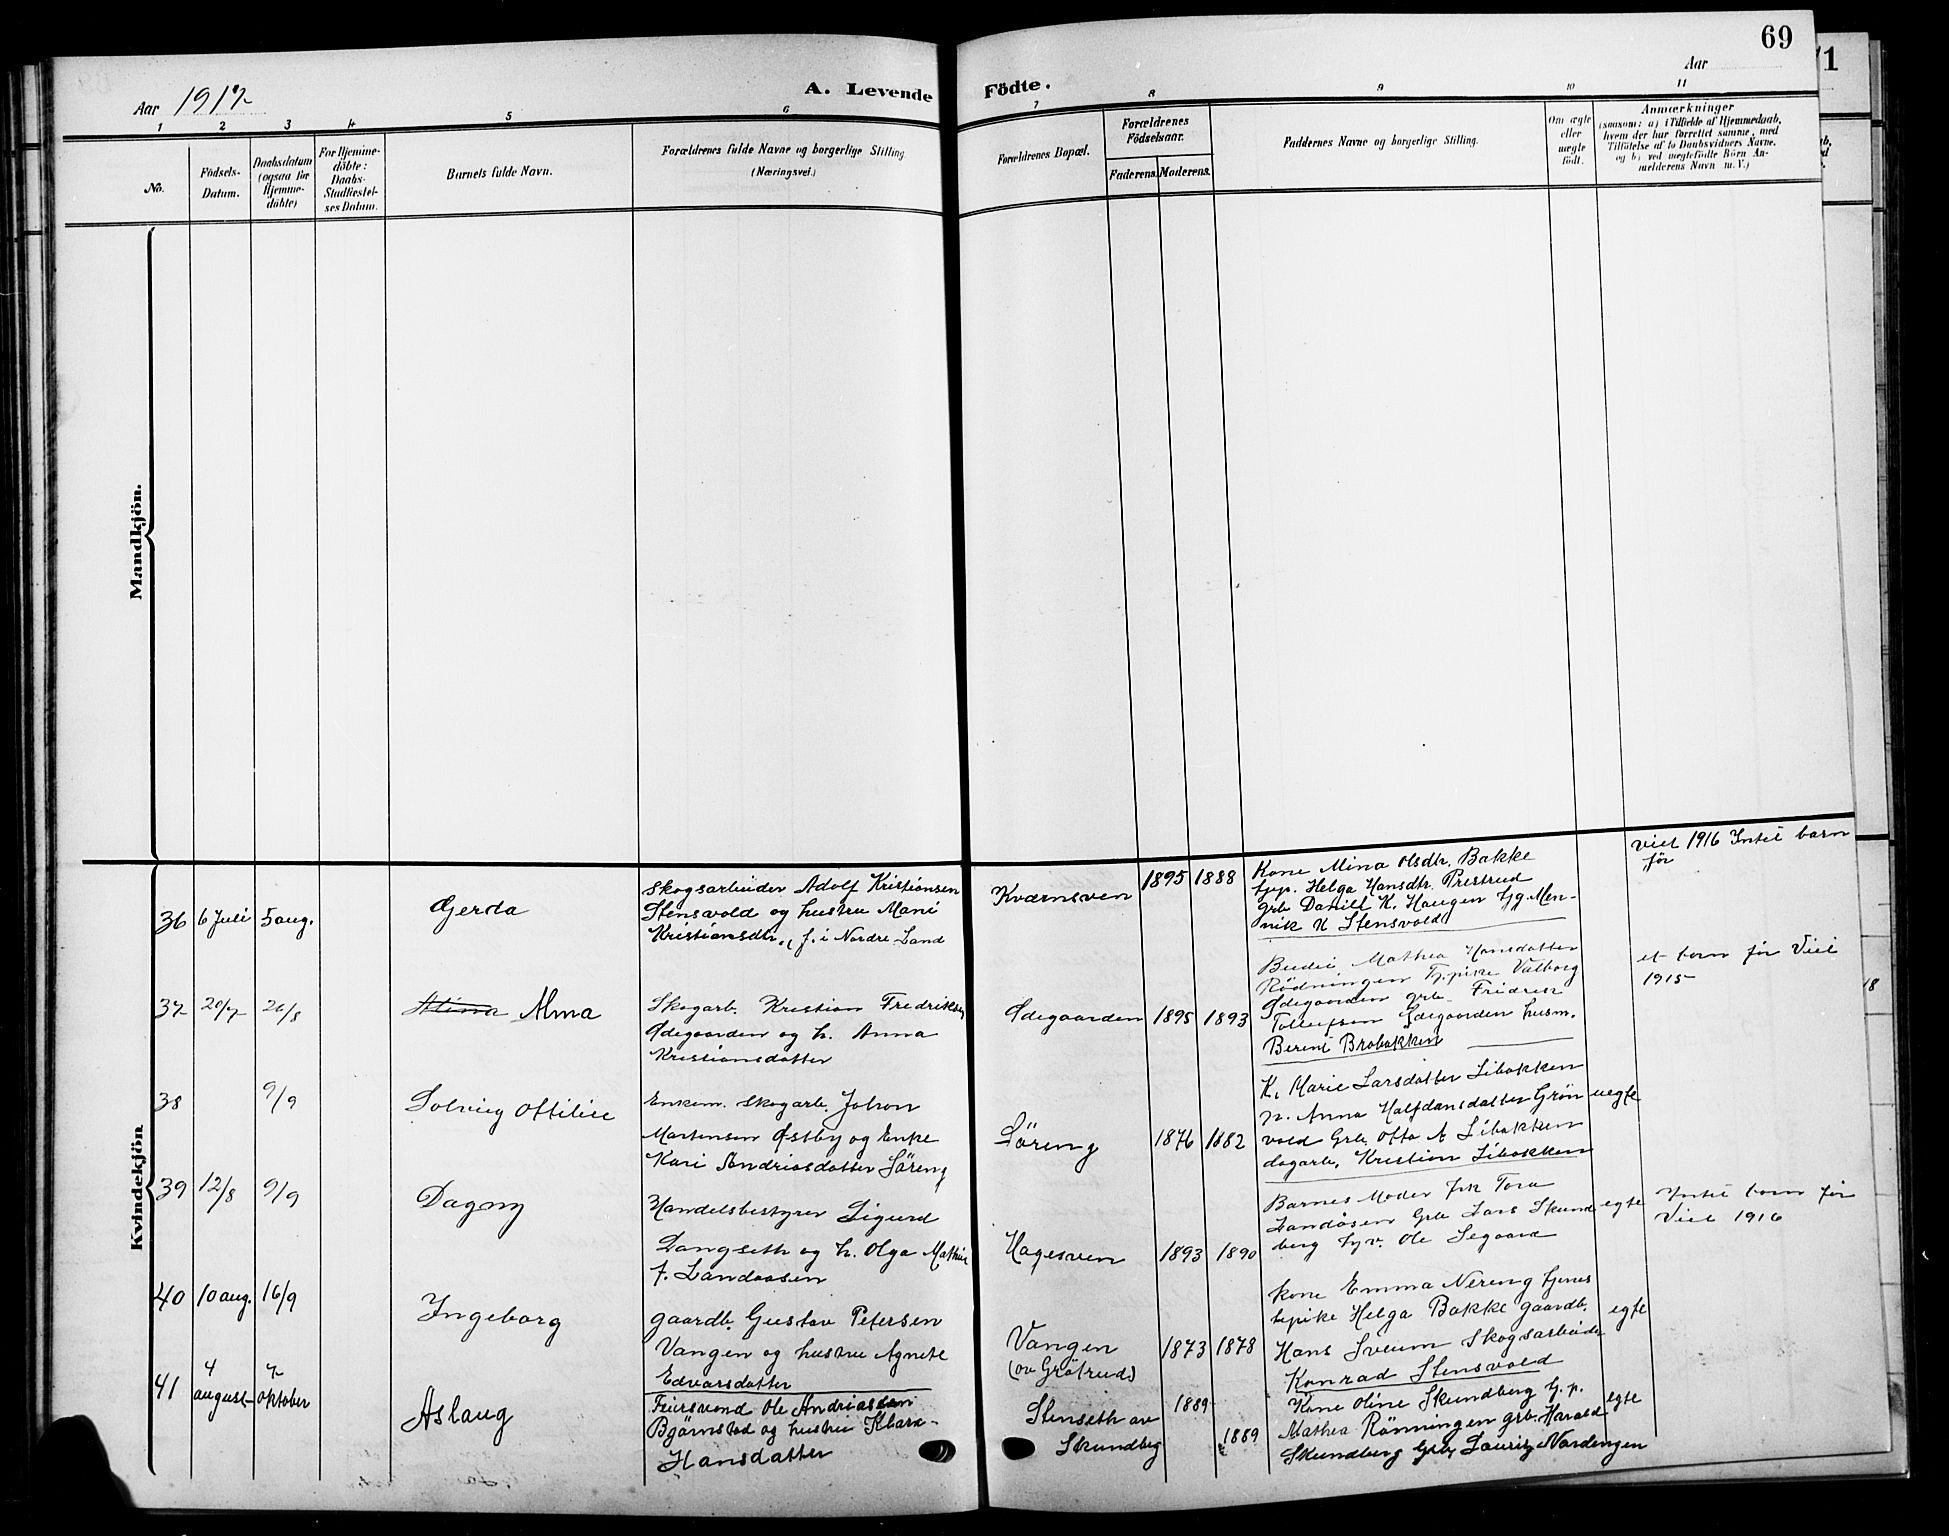 69
71
Aar 1917
A. Levende Födte.
Aar
1 2 3 4 5 6 7 8 9 10 11
No.
Födsels-
Datum.
Daabsdatum
(ogsaa for
Hjemme-
döbte)
For Hjemme-
döbte:
Daabs-
Stadfæstel-
ses Datum.
Barnets fulde Navn.
Forældrenes fulde Navne og borgerlige Stilling
(Næringsvei.)
Forældrenes Bopæl.
Forældrenes
Födselsaar.
Faderens. Moderens.
Faddernes Navne og borgerlige Stilling.
Om ægte
eller
uegte
født.
Anmærkninger
(saasom: a) i Tilfælde af Hjemmedaab,
hvem der har forrettet samme, med
Tilföielse af to Daabsvidners Navne,
og b) ved uegtefödte Börn An-
melderens Navn m. V.)
Mandkjön.
Kvindekjön
36 6 Juli 5 aug.
Gerda
Skogsarbeider Adolf Kristiansen
Stensvold og hustru Mani
Kristiansdtr., f. i Nordre Land
Kværnsven
1895 1888
Kone Mina Olsdtr. Bakke
tjep. Helga Hansdtr. Prestrud
grb Daniel K. Haugen tjg. Men-
nik K Stensvold
viet 1916 Intet barn
før
37 20/7 26/8
Alma
Skogarb. Kristian Fredriksen
Ødegaarden og h. Anna
Kristiansdatter
Ødegaarden
1895 1893
Budei Mathea Hansdatter
Rødningen Tj.pike Valborg
Ødegaarden grb. Fridrik
Tollefsen Ødegaarden husm.
Berent Brobakken
et barn før Viet
1915
38 9/9
Solveig Ottilie
Enkem. skogarb. Johan
Martensen Østby og Enke
Kari Andriasdatter Søreng
Søreng
1876 1882
K. Marie Larsdatter Libakken
n. Anna Halfdansdatter Grøn
vold Grb. Otto A Libakken
dagarb. Kristian Libakken
uegte
39 12/8 9/9
Dagny
Handelsbestyrer Sigurd
Langseth og h. Olga Mathie
f. Landaasen
Hagesven
1893 1890
Barnes Moder frk Tora
Landåsen Grb Lars Skund
berg Ole Segaard
egte
Intet barn før
Viet 1916
40 10 aug. 16/9
Ingeborg
gaardb. Gustav Petersen
Vangen og hustru Agnete
Edvarsdatter
Vangen
(av Grøtrud)
1873 1878
Kone Emma Nereng tjenes
tepike Helga Bakke gaardb.
Hans Sveum Skogsarbeider
Konrad Stensvold
egte
41 4 august 7 oktober
Aslaug
Feiersvend Ole Andriassen
Bjørnstad og hustru Klara
Hansdatter
Stenseth av
Skundberg
1889
1889
Kone Oline Skundberg tj. p.
Mathea Rönningen grb. Harald
Skundberg Grb. Lauritz Nordengen
egte
18